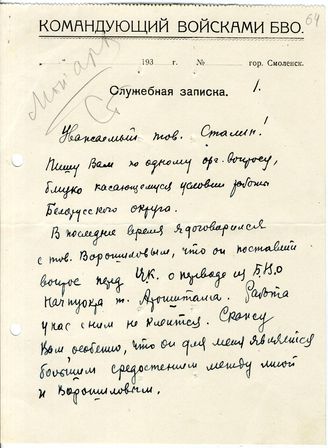 64
КОМАНДУЮЩИЙ ВОЙСКАМИ БВО.
193 г. № гор. Смоленск.
Мой арх
Ст
Служебная записка. 1.
Уважаемый тов. Сталин!
Пишу Вам по одному орг. вопросу,
близко касающемуся условий работы
Белорусского округа.
В последнее время я договорился
с тов. Ворошиловым, что он поставит
вопрос перед Ц.К. о переводе из Б.В.О
нач пуокра т. Аронштама. Работа
у нас с ним не клеится. Скажу
Вам особенно, что он для меня является
большим средостением между мной
и Ворошиловым.